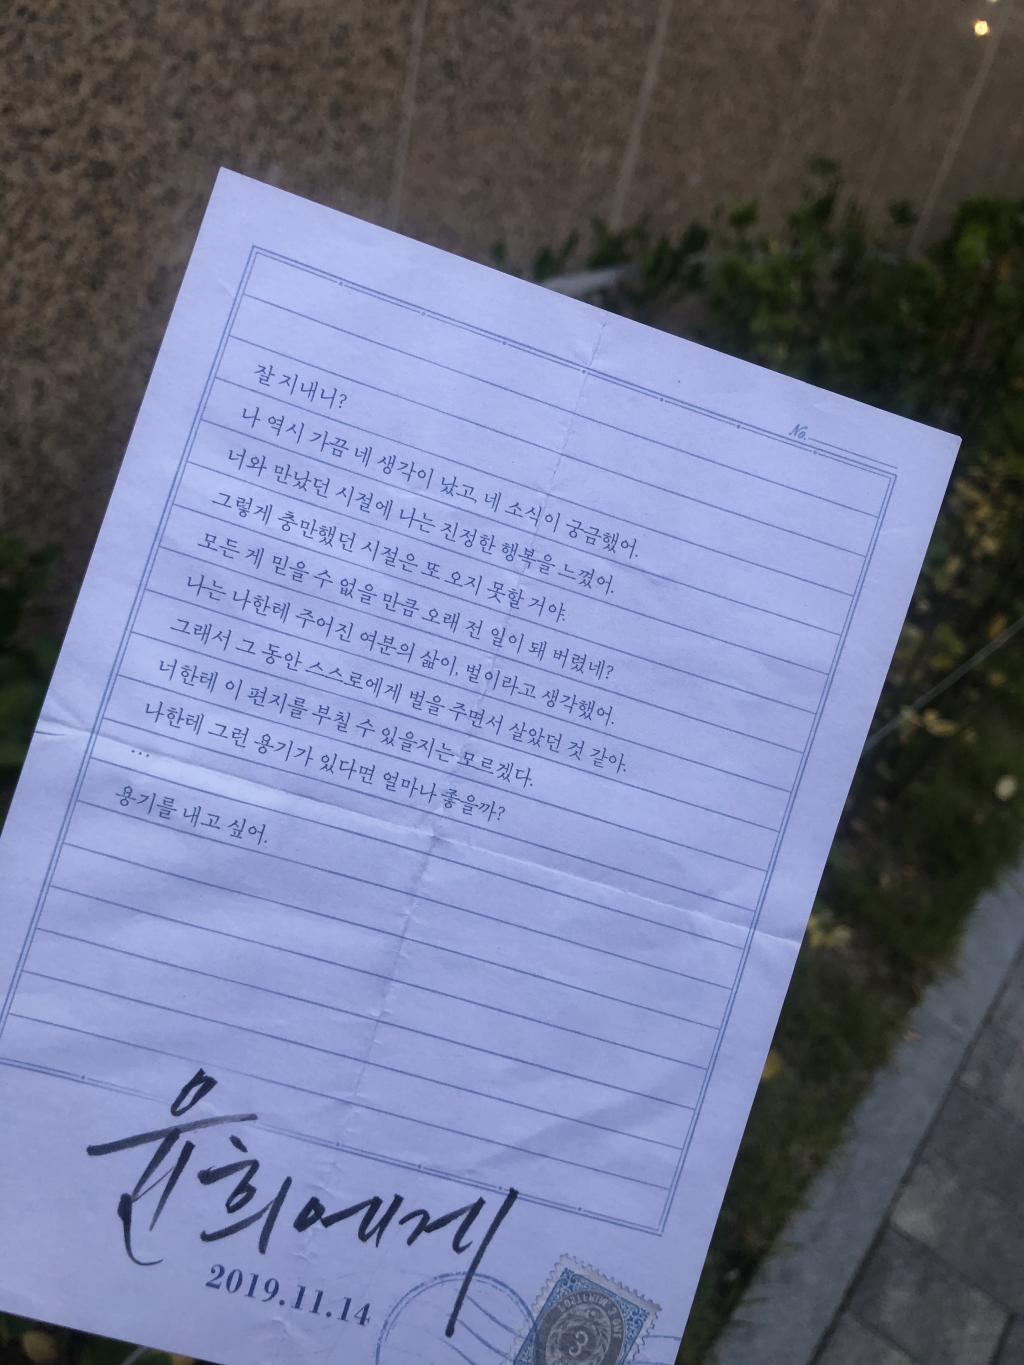 No.
잘 지내니?
나 역시 가끔 네 생각이 났고, 네 소식이 궁금했어.
너와 만났던 시절에 나는 진정한 행복을 느꼈어.
그렇게 충만했던 시절은 또 오지 못할 거야.
모든 게 믿을 수 없을 만큼 오래 전 일이 돼 버렸네?
나는 나한테 주어진 여분의 삶이, 벌이라고 생각했어.
그래서 그 동안 스스로에게 벌을 주면서 살았던 것 같아.
너한테 이 편지를 부칠 수 있을지는 모르겠다.
나한테 그런 용기가 있다면 얼마나 좋을까?
...
용기를 내고 싶어.
윤희에게
2019.11.14
3